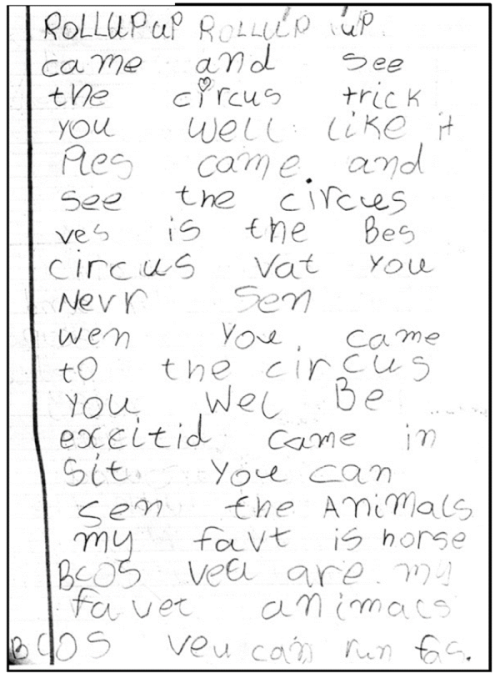 ROLLUP uP ROLLUP up
came and see
the circus trick
you well like it
Ples came. and
see the circus
ves is the Bes
circus Vat you
Nevr Sen
wen you. came
to the circus
you Wel Be
excitid came in
Sit. you can
sen the ANiMals
my favt is horse
BCOS veu are my
favet animacs
BCOS veu can run fas.